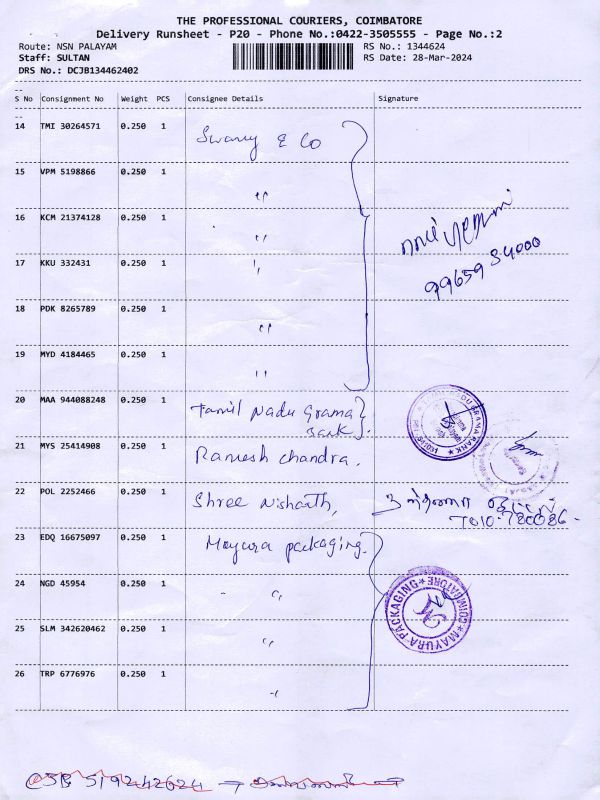 THE PROFESSIONAL COURIERS, COIMBATORE
Delivery Runsheet - P20 - Phone No.:0422-3505555 - Page No.:2
Route: NSN PALAYAM RS No.: 1344624
Staff: SULTAN RS Date: 28-Mar-2024
DRS No.: DCJB134462402
S No Consignment No Weight PCS Consignee Details Signature
14 TMI 30264571 0.250 1 Swamy & Co
15 VPM 5198866 0.250 1 "
16 KCM 21374128 0.250 1 "
17 KKU 332431 0.250 1 "
99659 84000
18 PDK 8265789 0.250 1 "
19 MYD 4184465 0.250 1 "
20 MAA 944088248 0.250 1 Tamil Nadu Grama
Bank
21 MYS 25414908 0.250 1 Ramesh chandra.
22 POL 2252466 0.250 1 Shree Nisharth,
23 EDQ 16675097 0.250 1 Mayura packaging.
24 NGD 45954 0.250 1 "
MAYURA PACKAGING * COIMBATORE *
25 SLM 342620462 0.250 1 "
26 TRP 6776976 0.250 1 "